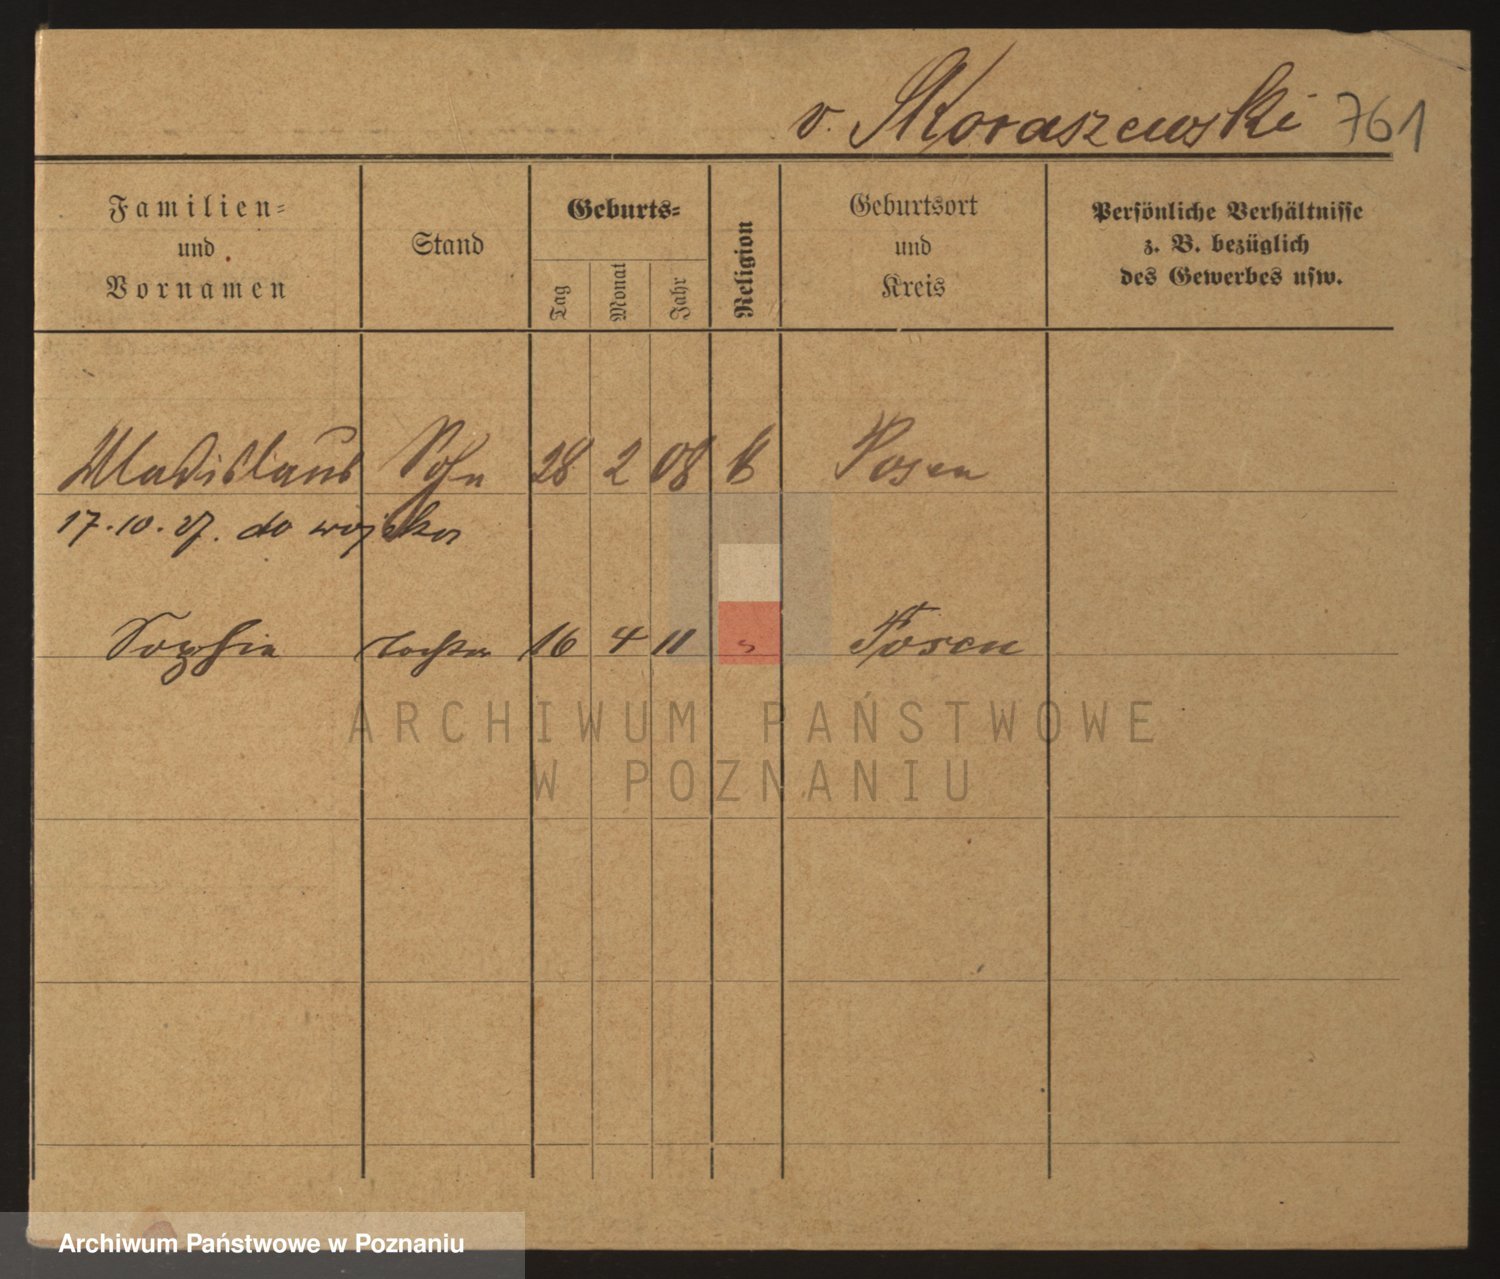 v. Skoraszewski 761
Familien-
und
Vornamen
Stand
Geburts-
Tag
Monat
Jahr
Religion
Geburtsort
und
Kreis
Persönliche Verhältnisse
z. B. bezüglich
des Gewerbes usw.
Wladislaus Sohn 28 2 08 k Posen
17.10.27. do wojska
Sophie Tochter 16 4 11 " Posen
ARCHIWUM PAŃSTWOWE
W POZNANIU
Archiwum Państwowe w Poznaniu